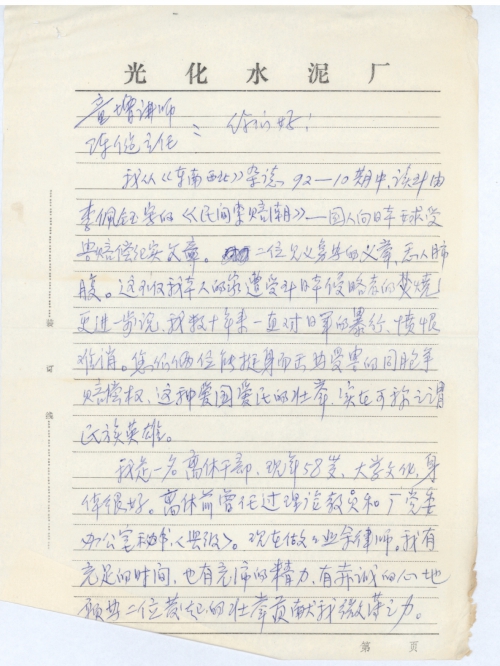 光化水泥厂
童增讲师
陈健主任 : 你们好!
我从《东南西北》杂志92—10期中,读到由
李佩钰写的《民间索赔潮》—国人向日本求受
害赔偿纪实文章。二位见义勇为的义举,感人肺
腹。这不仅我本人的家遭受到日本侵略者的焚烧,
更进一步说,我数十年来一直对日军的暴行,愤恨
难消。您们俩位能挺身而出为受害的同胞争
赔偿权,这种爱国爱民的壮举,实在可称之谓
民族英雄。
我是一名离休干部,现年58岁,大学文化,身
体很好。离休前曾任过理论教员和厂党委
办公室秘书,《县级》。现在做个业余律师。我有
充足的时间,也有充沛的精力,有赤诚的心地
愿为二位发起的壮举贡献我微薄之力。
装
订
线
第 页